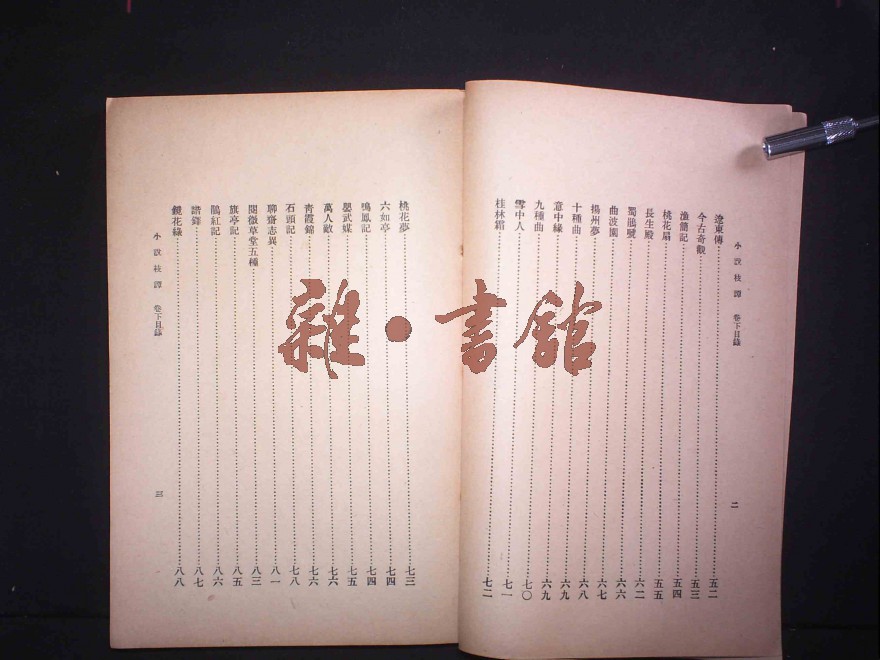 小說枝譚　卷下目錄
二
遼東傳……五二
今古奇觀……五三
漁籃記……五四
桃花扇……五五
長生殿……六二
蜀鵑啼……六六
曲波園……六七
揚州夢……六八
十種曲……六九
意中緣……六九
九種曲……七〇
雪中人……七一
桂林霜……七二
桃花夢……七三
六如亭……七四
鳴鳳記……七四
嬰武媒……七五
萬人敵……七六
青霞錦……七六
石頭記……七八
聊齋志異……八一
閱微草堂五種……八三
旗亭記……八五
鵑紅記……八六
諧鐸……八七
鏡花緣……八八
小說枝譚　卷下目錄
三
雜·書館